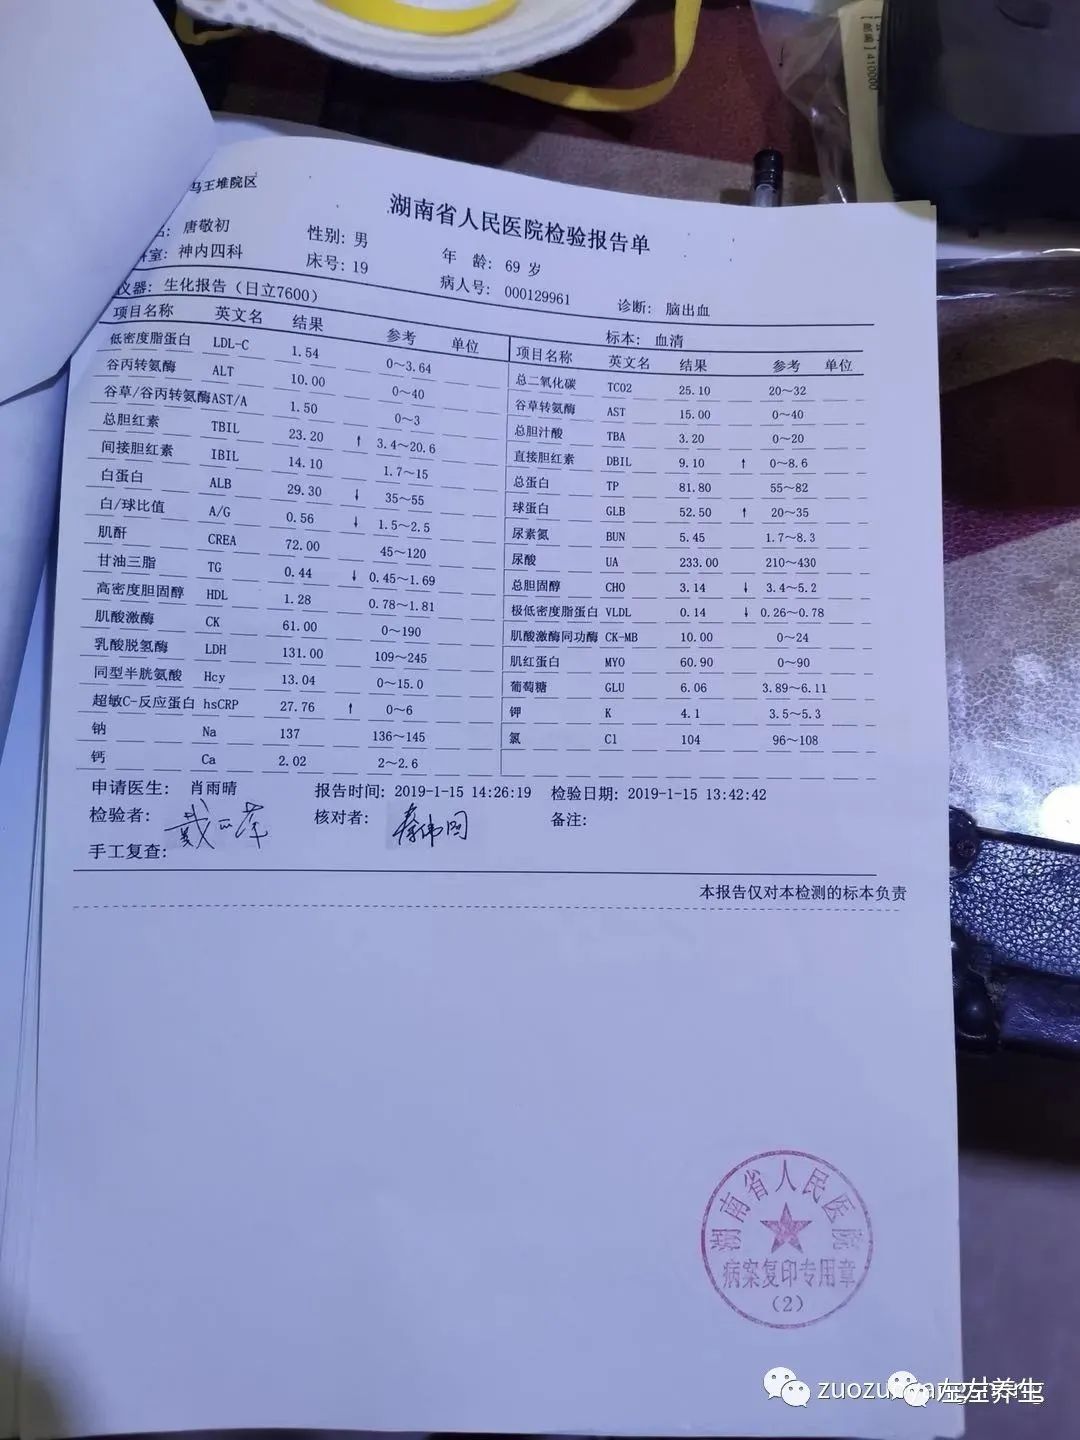 【邮编】410000
马王堆院区
湖南省人民医院检验报告单
名: 唐敬初 性别: 男 年 龄: 69 岁
科室: 神内四科 床号: 19 病人号: 000129961 诊断: 脑出血
仪器: 生化报告（日立7600） 标本: 血清
项目名称 英文名 结果 参考 单位
低密度脂蛋白 LDL-C 1.54 0～3.64
谷丙转氨酶 ALT 10.00 0～40
谷草/谷丙转氨酶AST/A 1.50 0～3
总胆红素 TBIL 23.20 ↑ 3.4～20.6
间接胆红素 IBIL 14.10 1.7～15
白蛋白 ALB 29.30 ↓ 35～55
白/球比值 A/G 0.56 ↓ 1.5～2.5
肌酐 CREA 72.00 45～120
甘油三脂 TG 0.44 ↓ 0.45～1.69
高密度胆固醇 HDL 1.28 0.78～1.81
肌酸激酶 CK 61.00 0～190
乳酸脱氢酶 LDH 131.00 109～245
同型半胱氨酸 Hcy 13.04 0～15.0
超敏C-反应蛋白 hsCRP 27.76 ↑ 0～6
钠 Na 137 136～145
钙 Ca 2.02 2～2.6
项目名称 英文名 结果 参考 单位
总二氧化碳 TCO2 25.10 20～32
谷草转氨酶 AST 15.00 0～40
总胆汁酸 TBA 3.20 0～20
直接胆红素 DBIL 9.10 ↑ 0～8.6
总蛋白 TP 81.80 55～82
球蛋白 GLB 52.50 ↑ 20～35
尿素氮 BUN 5.45 1.7～8.3
尿酸 UA 233.00 210～430
总胆固醇 CHO 3.14 ↓ 3.4～5.2
极低密度脂蛋白 VLDL 0.14 ↓ 0.26～0.78
肌酸激酶同功酶 CK-MB 10.00 0～24
肌红蛋白 MYO 60.90 0～90
葡萄糖 GLU 6.06 3.89～6.11
钾 K 4.1 3.5～5.3
氯 Cl 104 96～108
申请医生: 肖雨晴 报告时间: 2019-1-15 14:26:19 检验日期: 2019-1-15 13:42:42
检验者: 核对者: 备注:
手工复查:
本报告仅对本检测的标本负责
湖南省人民医院
病案复印专用章
(2)
左左养生